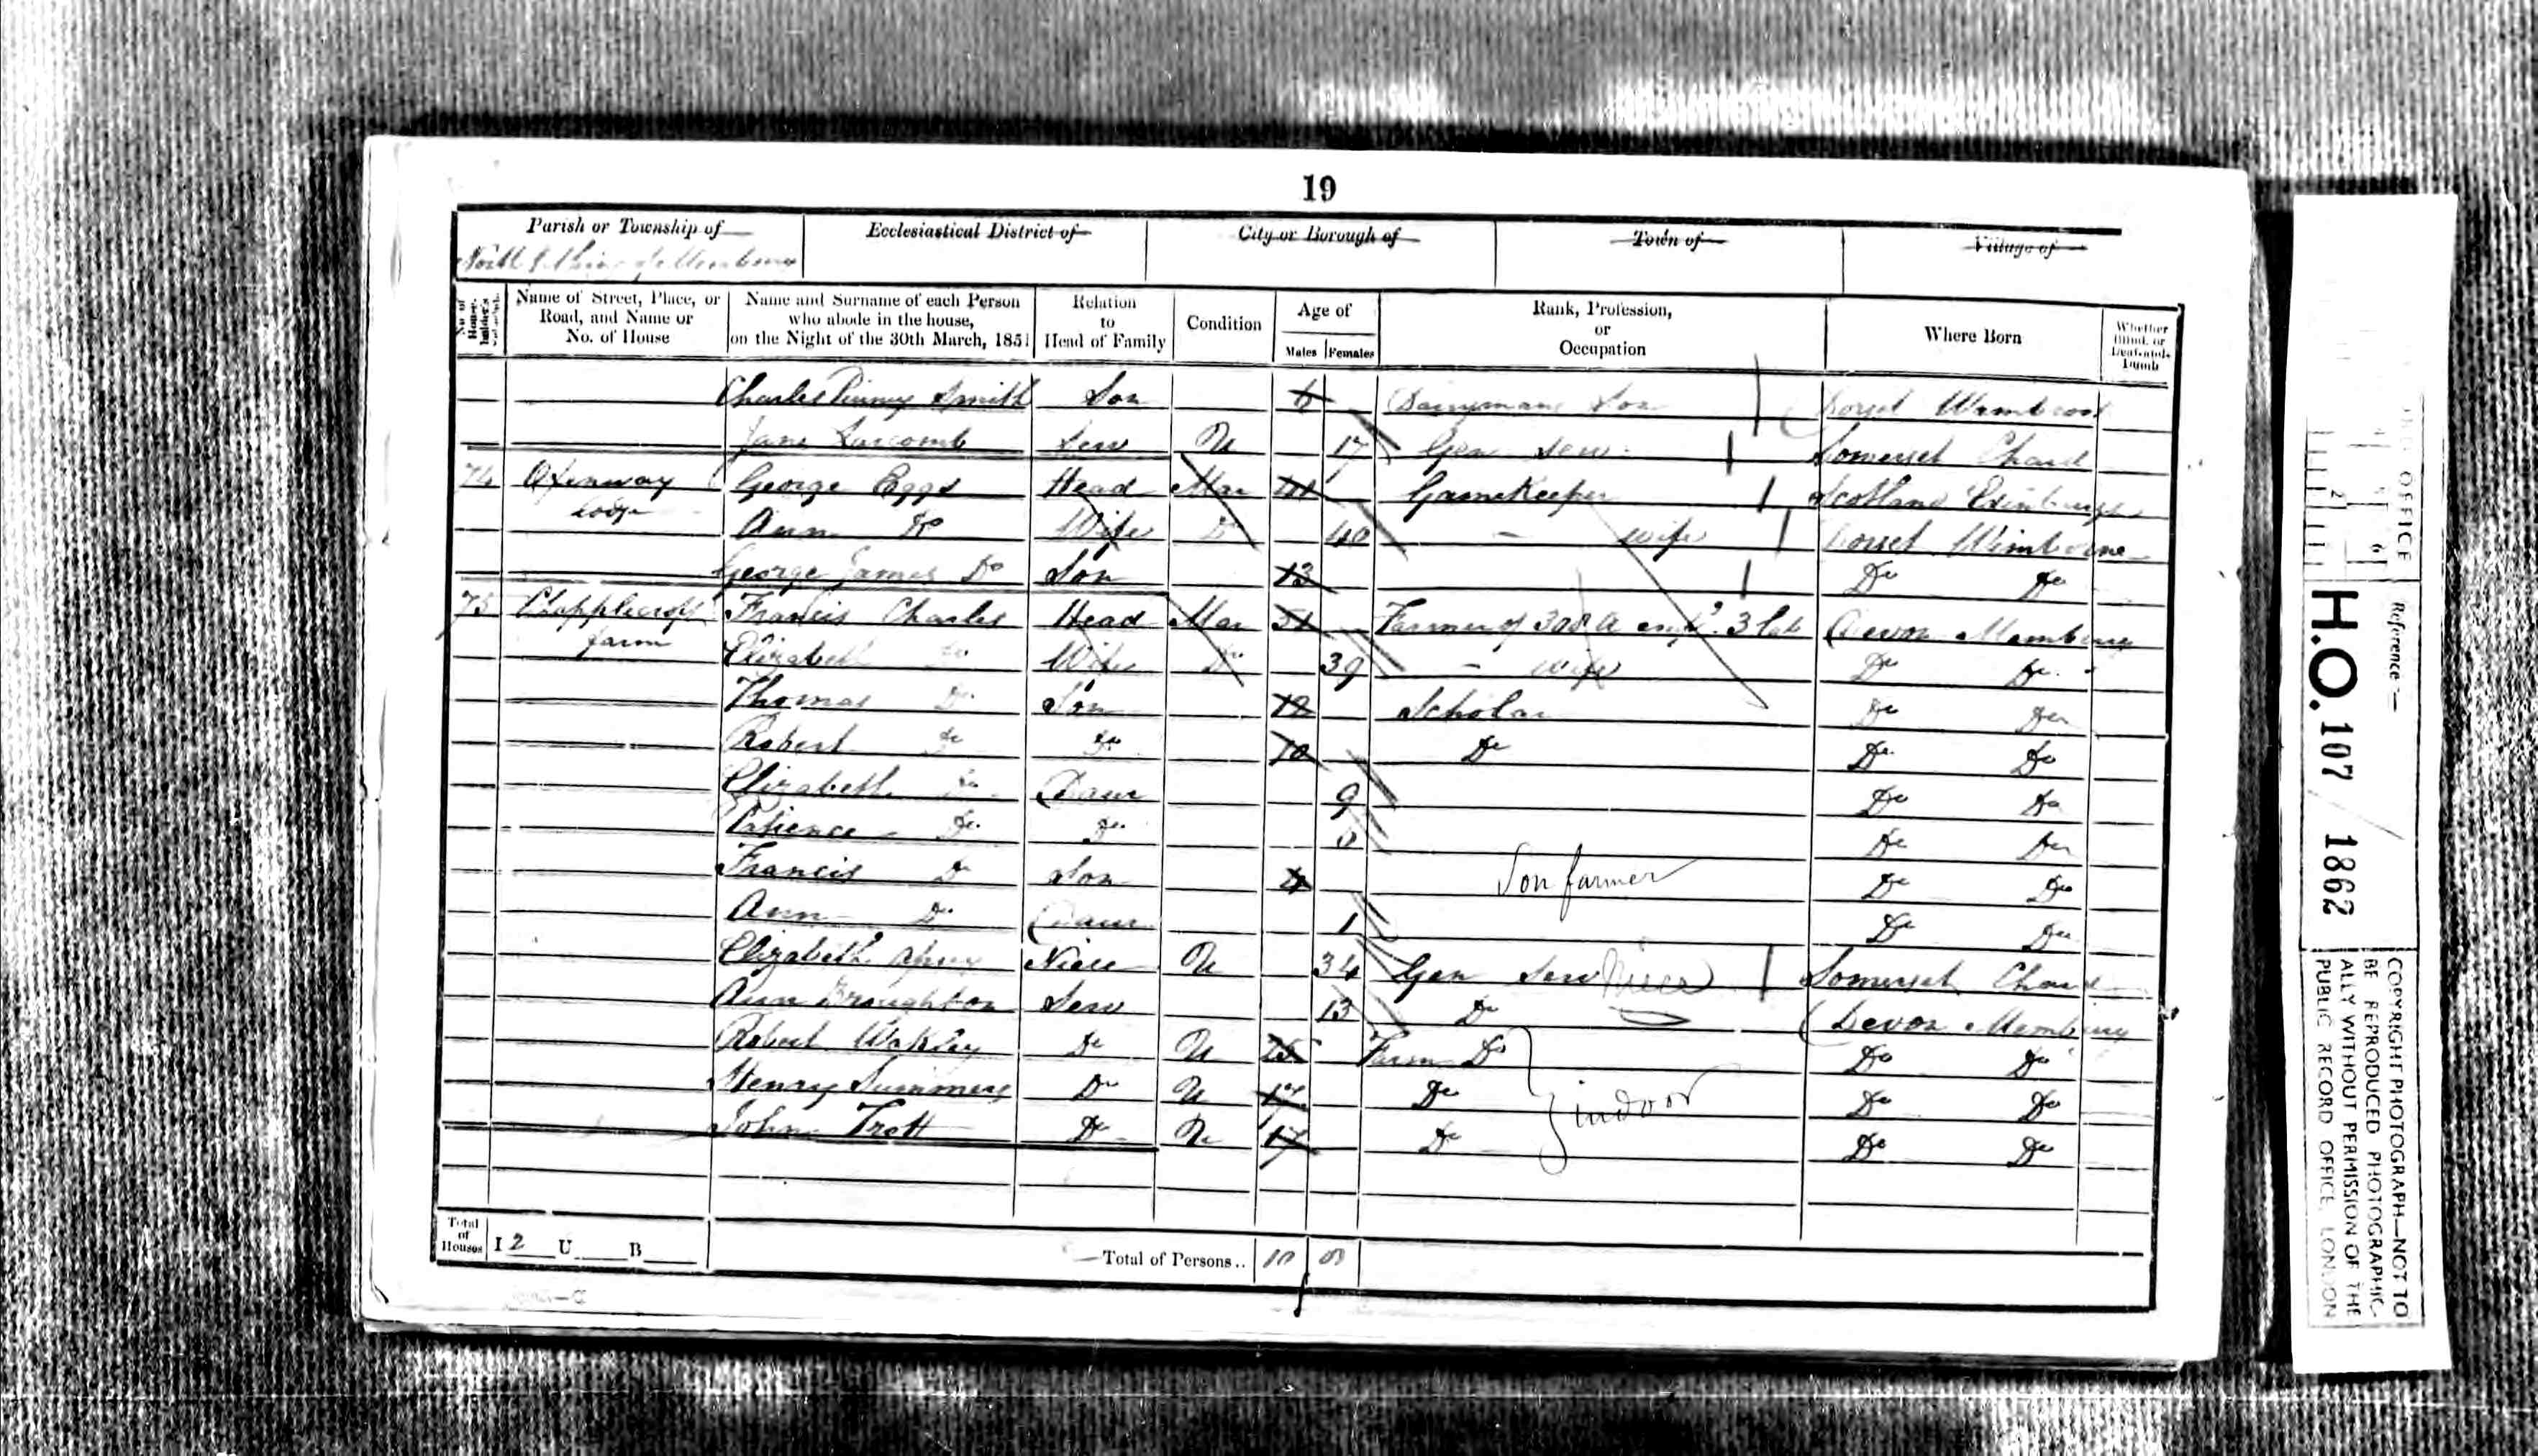 19
Parish or Township of
Ecclesiastical District of
City or Borough of
Town of
Village of
North
No. of House-holder's Schedule
Name of Street, Place, or Road, and Name or No. of House
Name and Surname of each Person who abode in the house, on the Night of the 30th March, 1851
Relation to Head of Family
Condition
Age of
Males Females
Rank, Profession, or Occupation
Where Born
Whether Blind, or Deaf-and-Dumb
Charles Smith Son 6 Son Dorset
Jane Larcomb Serv U 17 Gen Serv Somerset Chard
74 Lodge George Eggs Head Mar Gamekeeper Scotland Edinburgh
Ann Do Wife Do 40 - wife Dorset Wimborne
George James Do Son 13 Do Do
75 Farm Francis Charles Head Mar 51 Farmer of A 3 lab Devon Membury
Elizabeth Do Wife Do 39 - wife Do Do
Thomas Do Son 12 Scholar Do Do
Robert Do Do 10 Do Do Do
Elizabeth Do Daur 9 Do Do
Patience Do Do Do Do
Francis Do Son 4 Son farmer Do Do
Ann Do Daur 1 Do Do
Elizabeth Niece U 34 Gen Serv Niece Somerset Chard
Ann Broughton Serv 13 Do Devon Membury
Robert Wakley Do U Farm Do Do Do
Henry Summers Do U Do indoor Do Do
John Trott Do U 17 Do Do Do
Total of Houses I 2 U B
Total of Persons.. 10
OFFICE
Reference :-
H.O. 107 / 1862
COPYRIGHT PHOTOGRAPH—NOT TO
BE REPRODUCED PHOTOGRAPHIC-
ALLY WITHOUT PERMISSION OF THE
PUBLIC RECORD OFFICE, LONDON